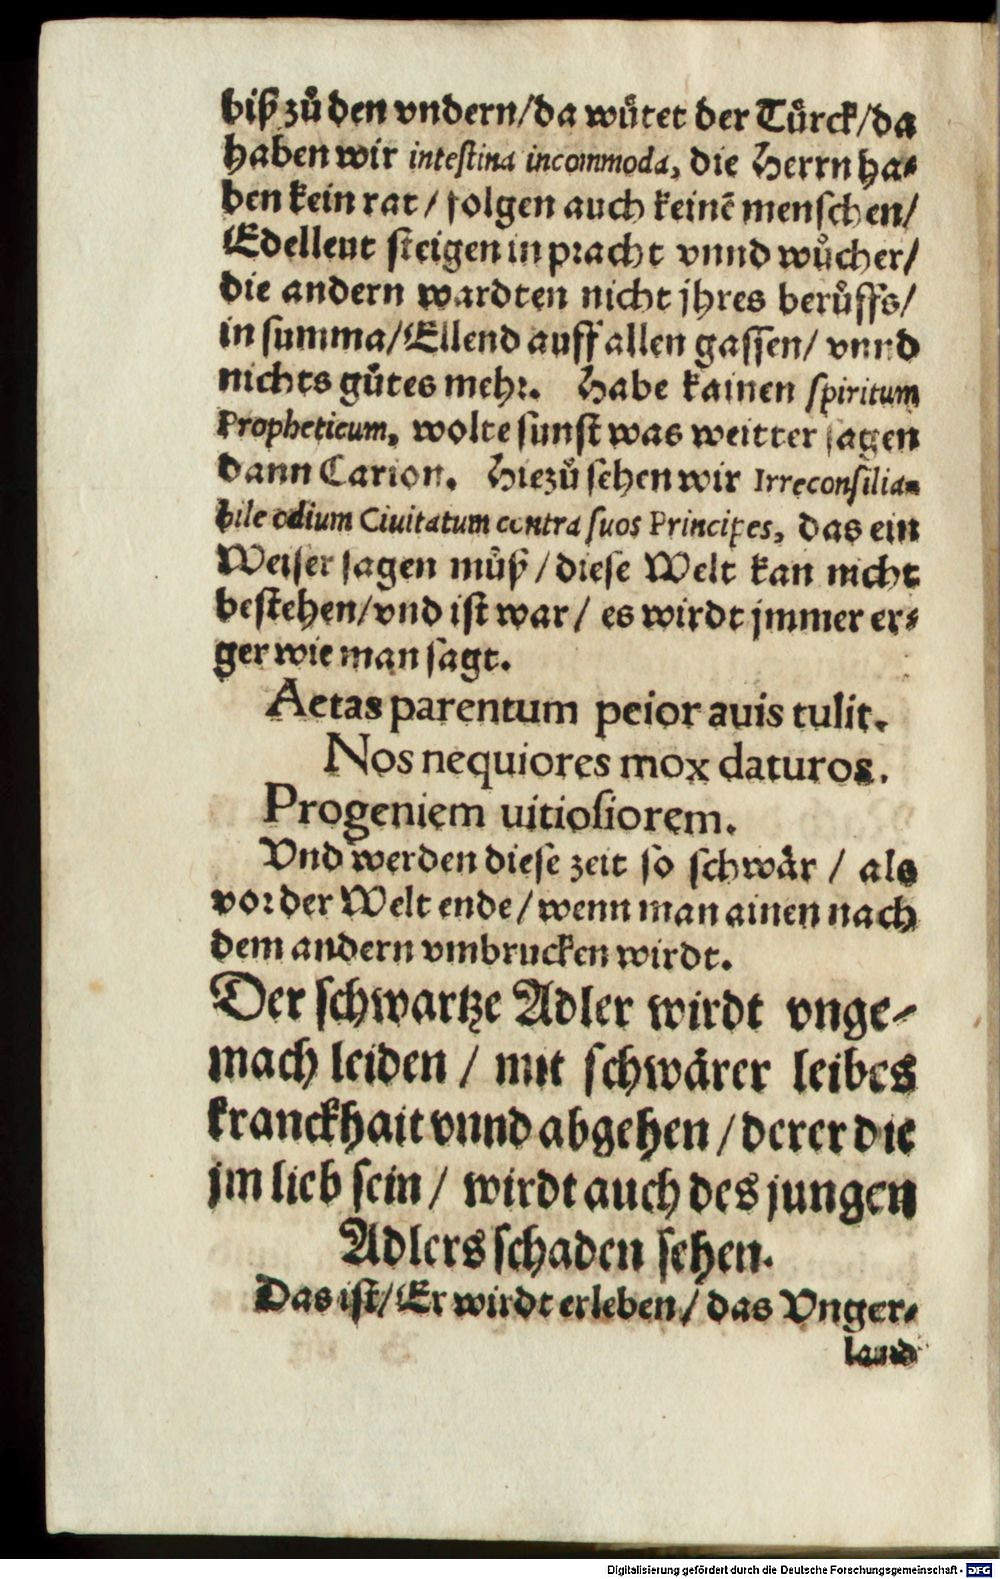 biß zuͦ den vndern/da wuͤtet der Tuͤrck/da
haben wir intestina incommoda, die Herrn ha⸗
ben kein rat / folgen auch keinē menschen/
Edelleut steigen in pracht vnnd wuͦcher/
die andern wardten nicht jhres beruͦffs/
in summa/Ellend auff allen gassen/ vnnd
nichts guͤtes mehr. Habe kainen spiritum
Propheticum, wolte sunst was weitter sagen
dann Carion. Hiezuͦ sehen wir Irreconsilia⸗
bile odium Ciuitatum contra suos Principes, das ein
Weiser sagen muͦß / diese Welt kan nicht
bestehen/vnd ist war / es wirdt jmmer er⸗
ger wie man sagt.
Aetas parentum peior auis tulit.
Nos nequiores mox daturos.
Progeniem uitiosiorem.
Vnd werden diese zeit so schwaͤr / als
vor der Welt ende / wenn man ainen nach
dem andern vmbrucken wirdt.
Der schwartze Adler wirdt vnge⸗
mach leiden / mit schwaͤrer leibes
kranckhait vnnd abgehen / derer die
jm lieb sein / wirdt auch des jungen
Adlers schaden sehen.
Das ist/Er wirdt erleben / das Vnger⸗
land
Digitalisierung gefördert durch die Deutsche Forschungsgemeinschaft - DFG